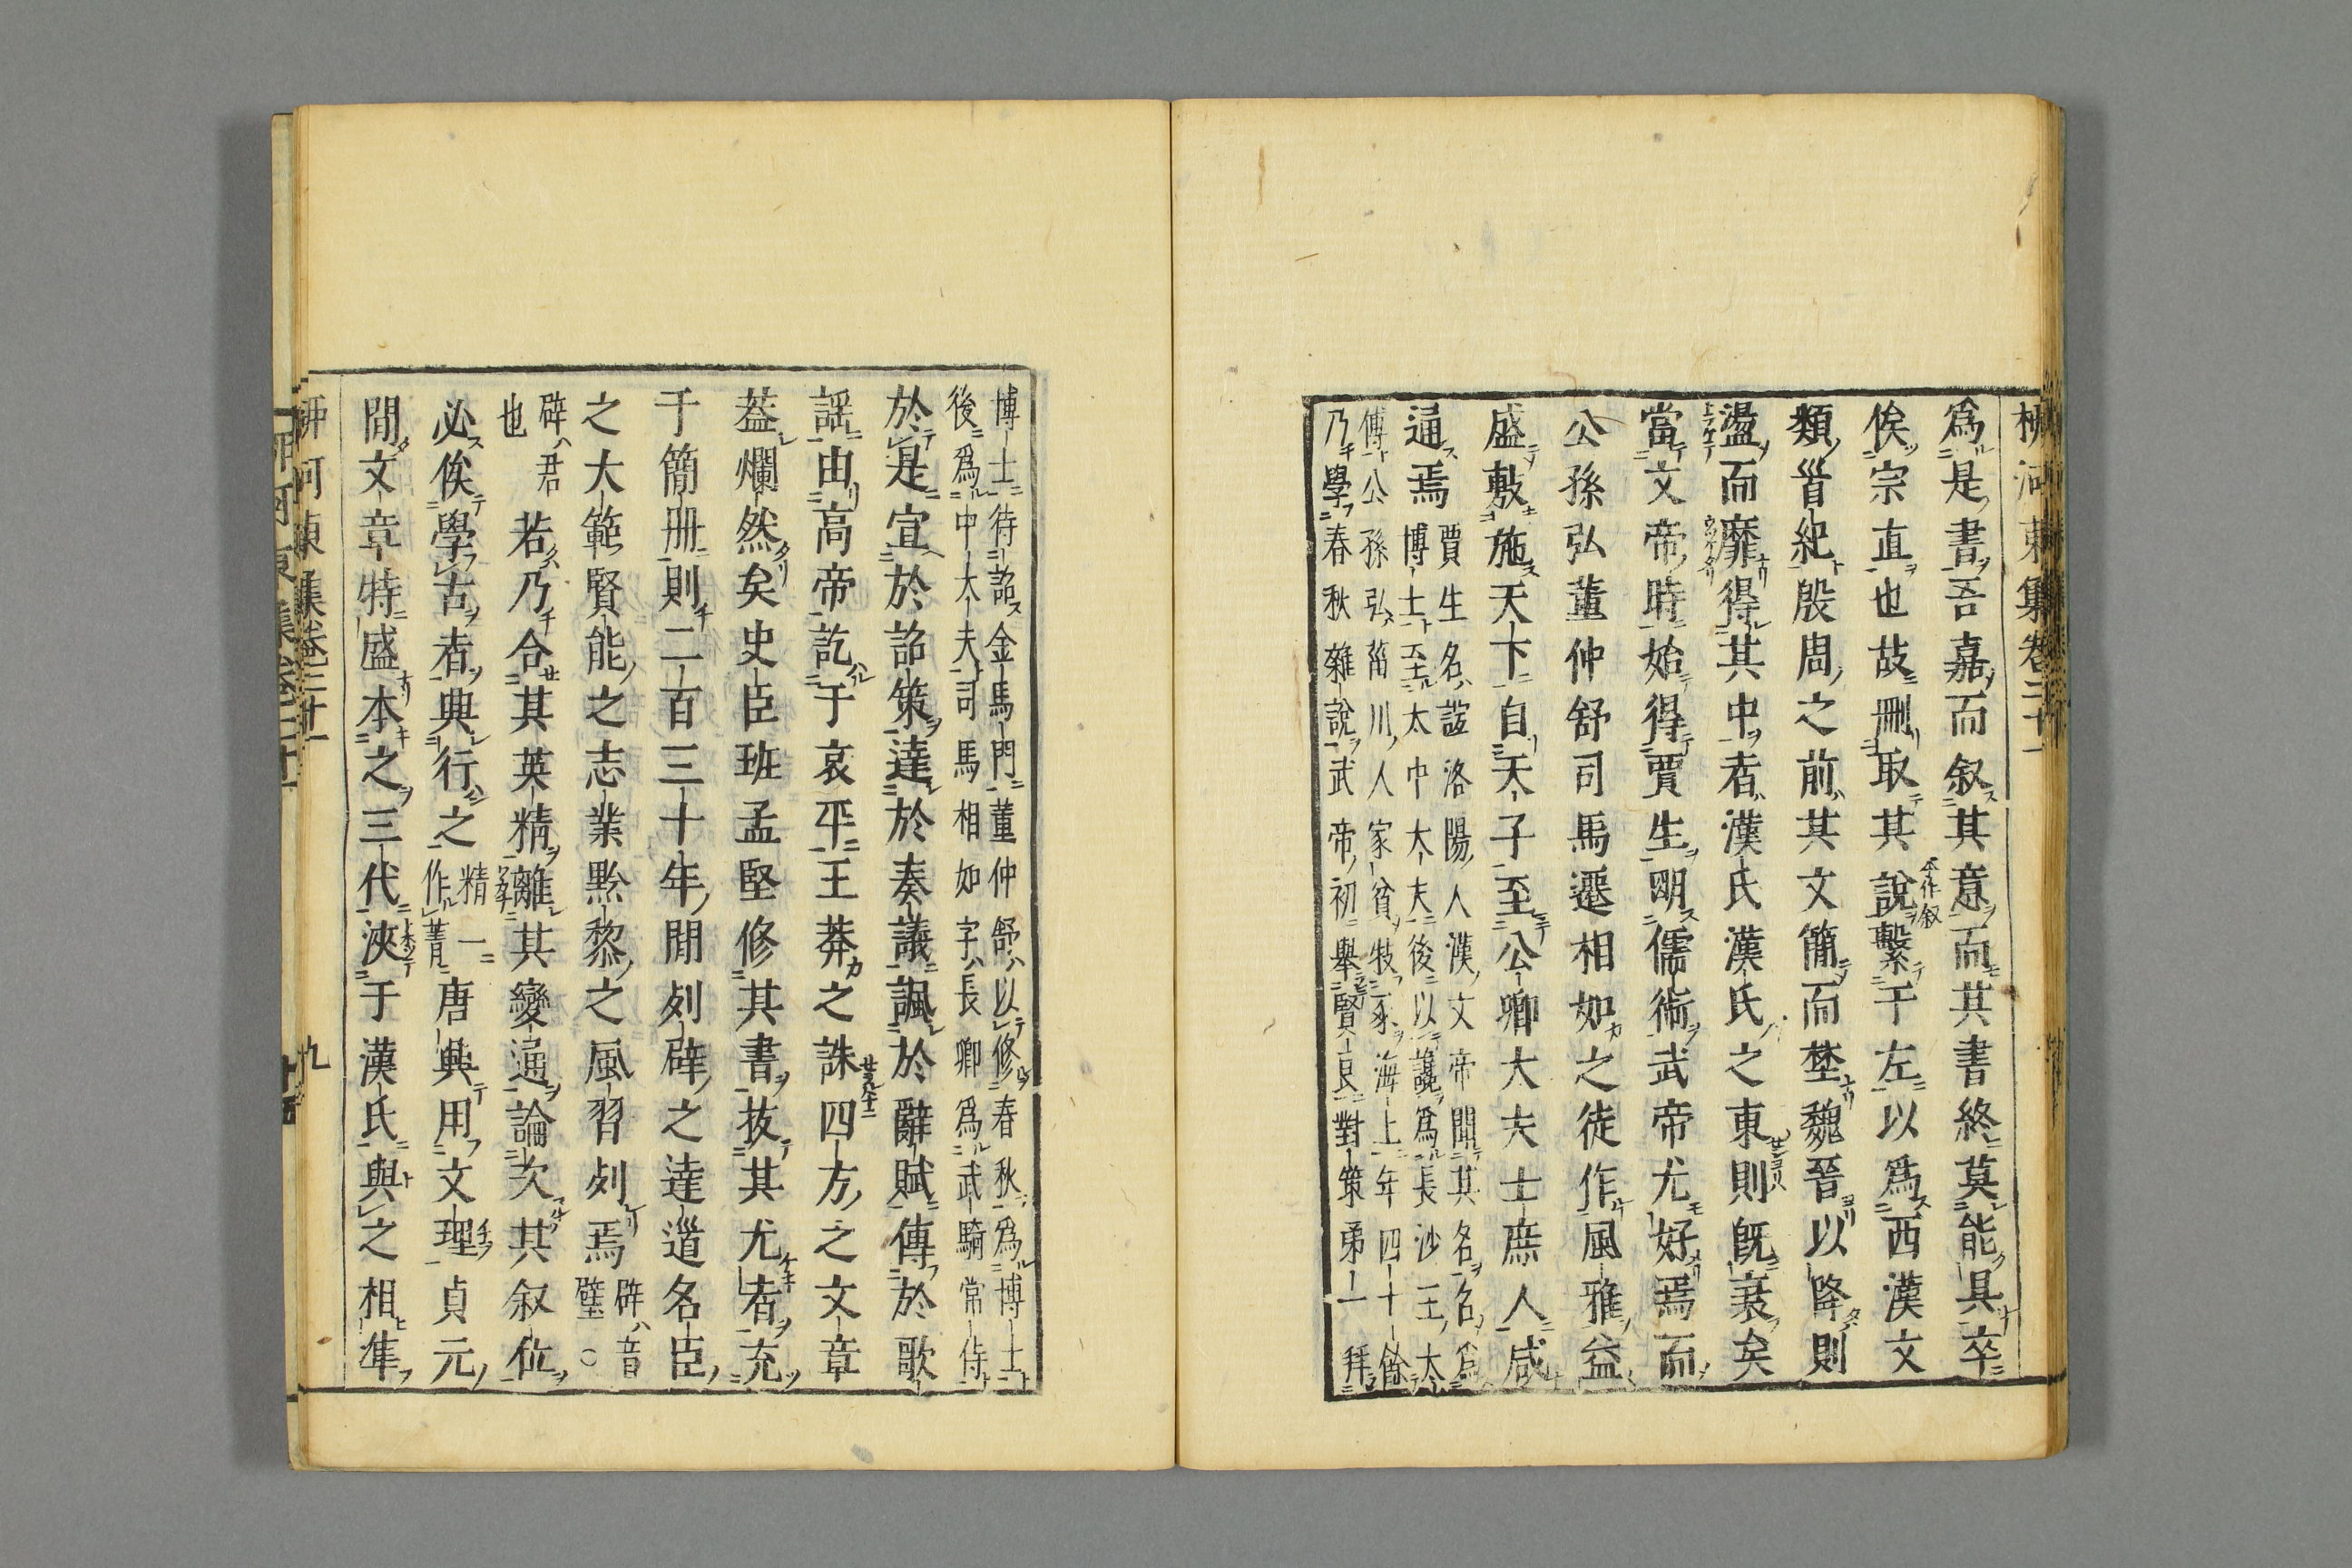 柳河東集卷二十一
爲是書吾嘉而叙其意而其書終莫能具卒
俟宗直也故刪取其說繫于左以爲西漢文
類首紀殷周之前其文簡而埜魏晉以降則
盪而靡得其中者漢氏漢氏之東則旣衰矣
當文帝時始得賈生明儒術武帝尤好焉而
公孫弘董仲舒司馬遷相如之徒作風雅益
盛敷施天下自天子至公卿大夫士庶人咸
通焉
賈生名誼洛陽人漢文帝聞其名召爲
博士至太中大夫後以讒爲長沙王太
傅公孫弘菑川人家貧牧豕海上年四十餘
乃學春秋雜說武帝初舉賢良對策第一拜
博士待詔金馬門董仲舒以修春秋爲博士
後爲中大夫司馬相如字長卿爲武騎常侍
於是宣於詔策達於奏議諷於辭賦傳於歌
謡由高帝訖于哀平王莽之誅四方之文章
葢爛然矣史臣班孟堅修其書抜其尤者充
于簡冊則二百三十年間列辟之達道名臣
之大範賢能之志業黔黎之風習列焉
辟音
璧○
辟君
也
若乃合其英精離其變通論次其叙位
必俟學古者興行之
精一
作菁
唐興用文理貞元
間文章特盛本之三代浹于漢氏與之相準
柳河東集卷二十一
九